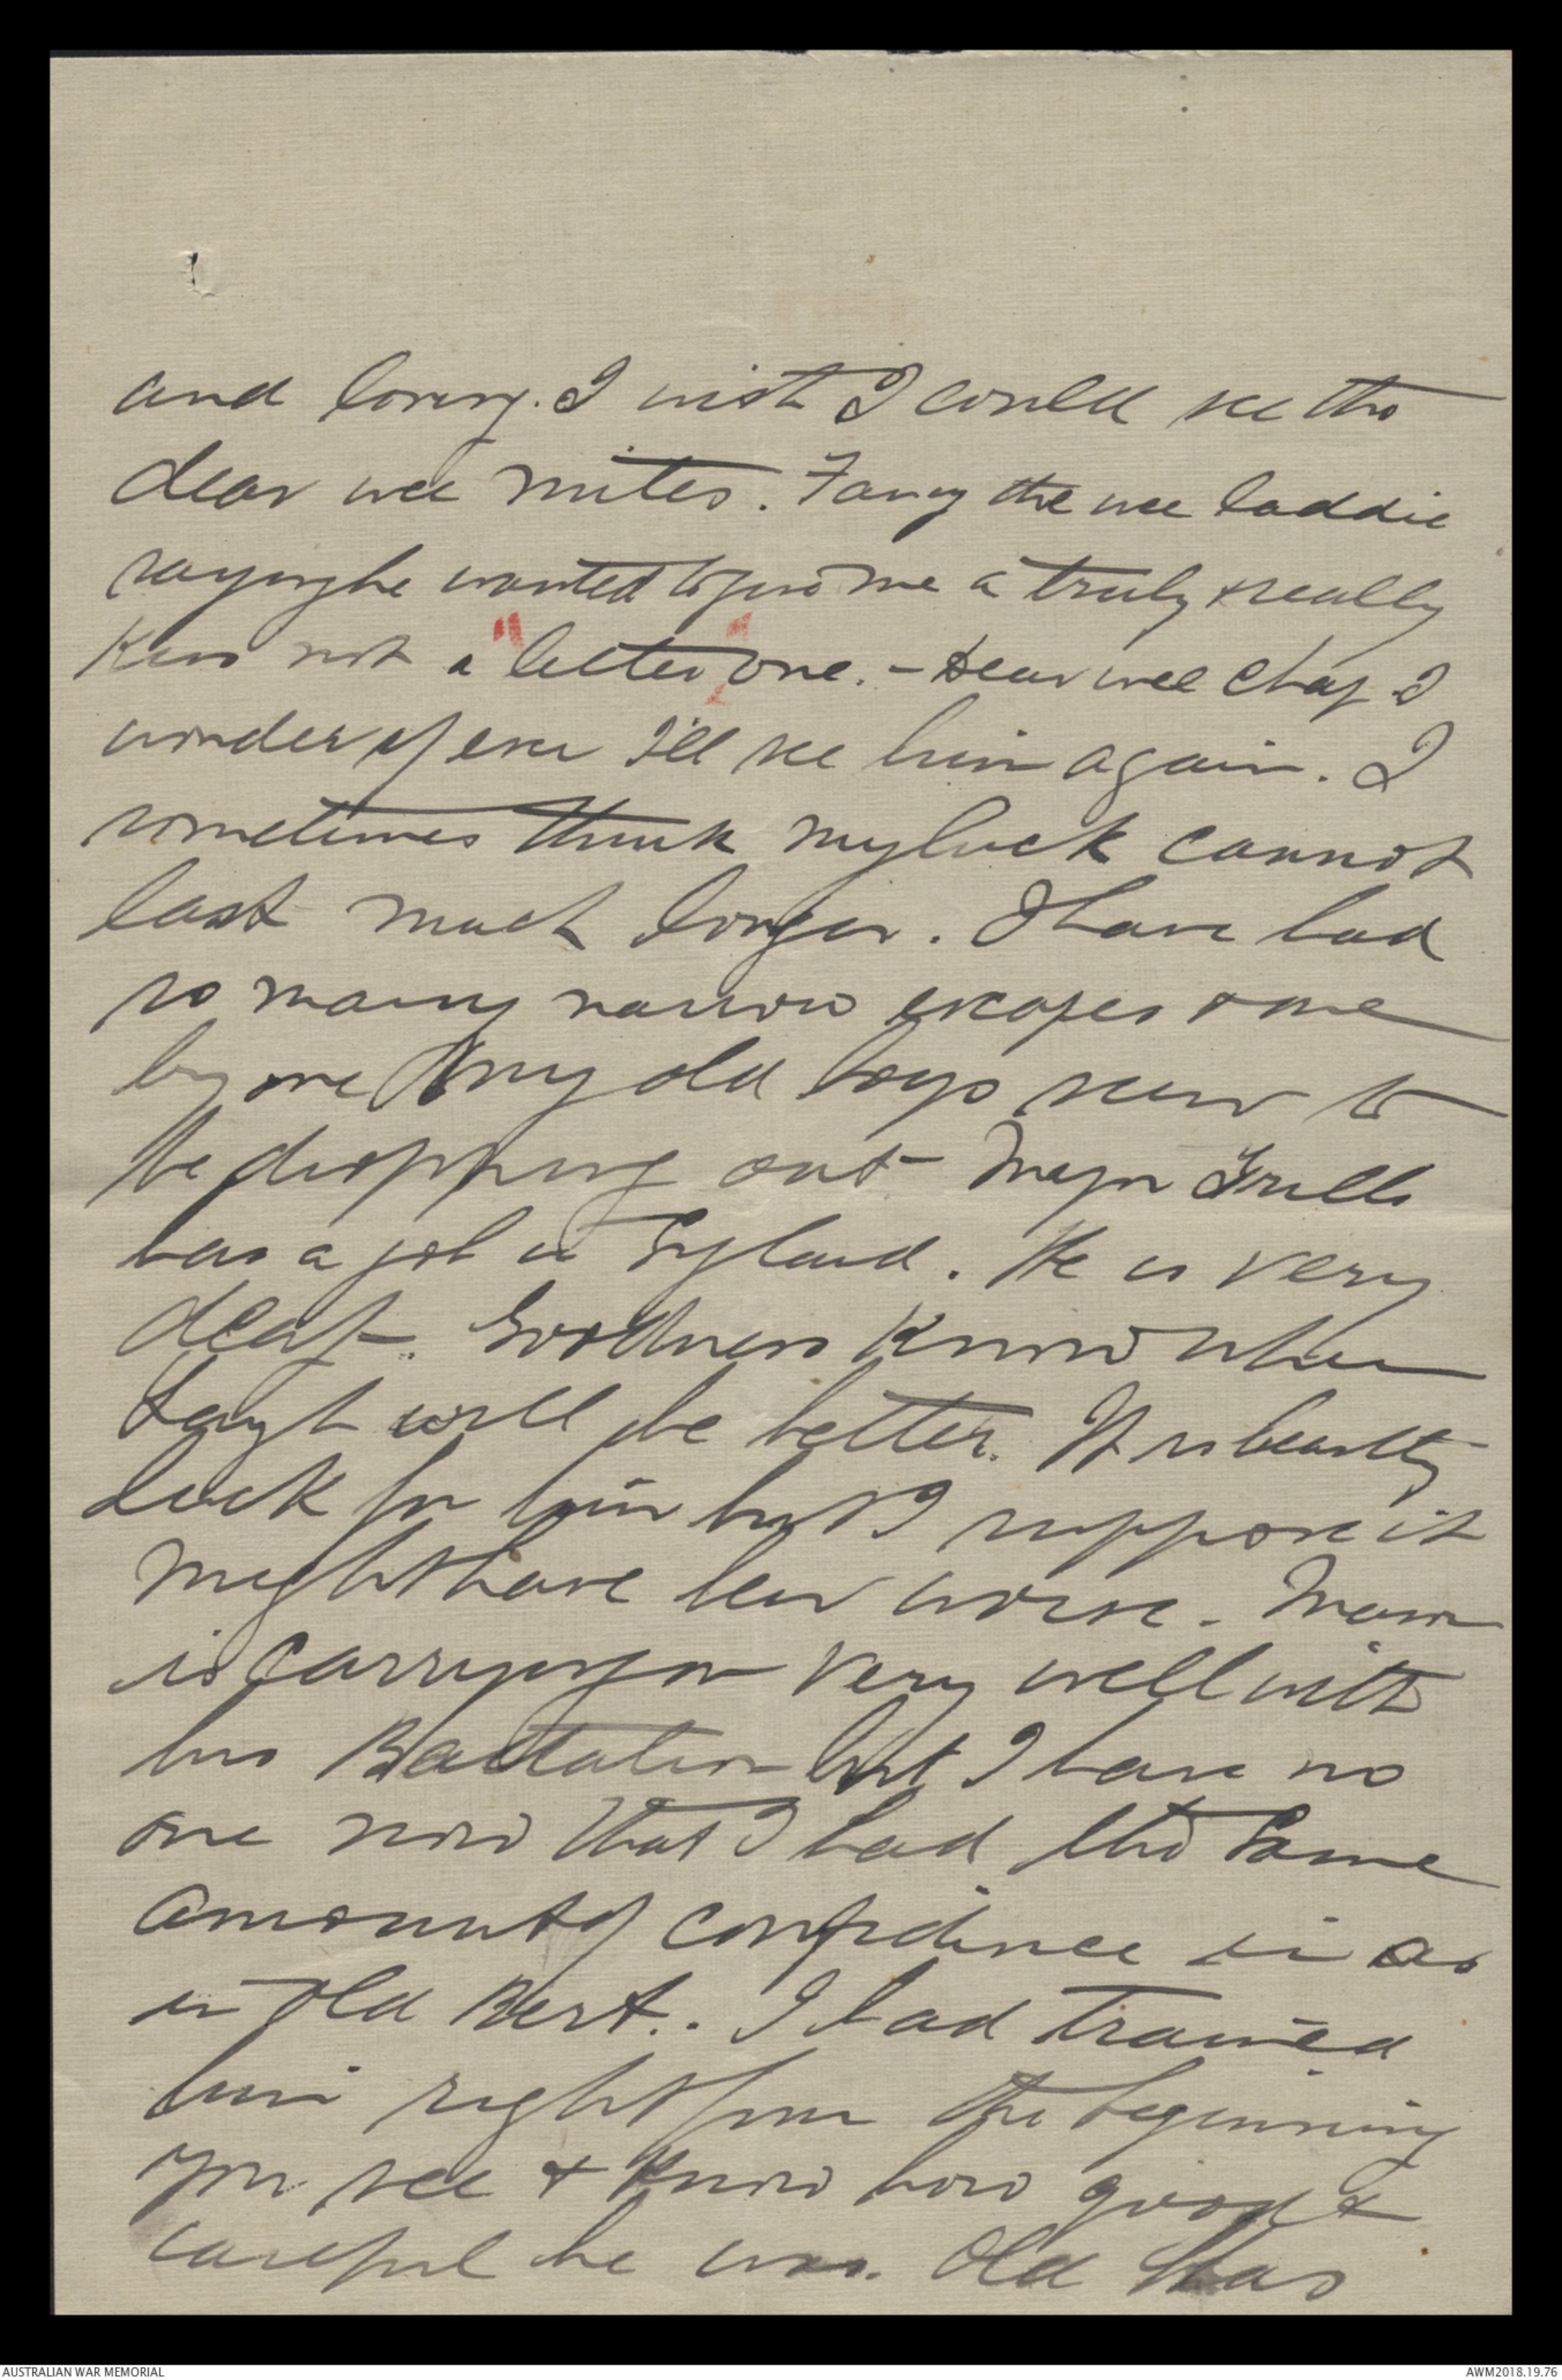 and loving. I wish I could see the
dear wee mites. Fancy the wee laddie
saying he wanted to give me a truly & really
kiss not a "letter" one. - Dear wee chap I
wonder if ever I'll see him again. I
sometimes think my luck cannot
last much longer. I have had
so many narrow escapes & one
by one my old boys seem to
be dropping out - Major
has a job in England. He is very
deaf. Goodness knows when
will be better. It is beastly
luck for him but I suppose it
might have been worse. Mann
is carrying on very well with
his Battalion but I have no
one now that I had the same
amount of confidence in as
in old Bert.. I had trained
him right from the beginning
you see & know how good &
careful he was. Old Stas
AUSTRALIAN WAR MEMORIAL